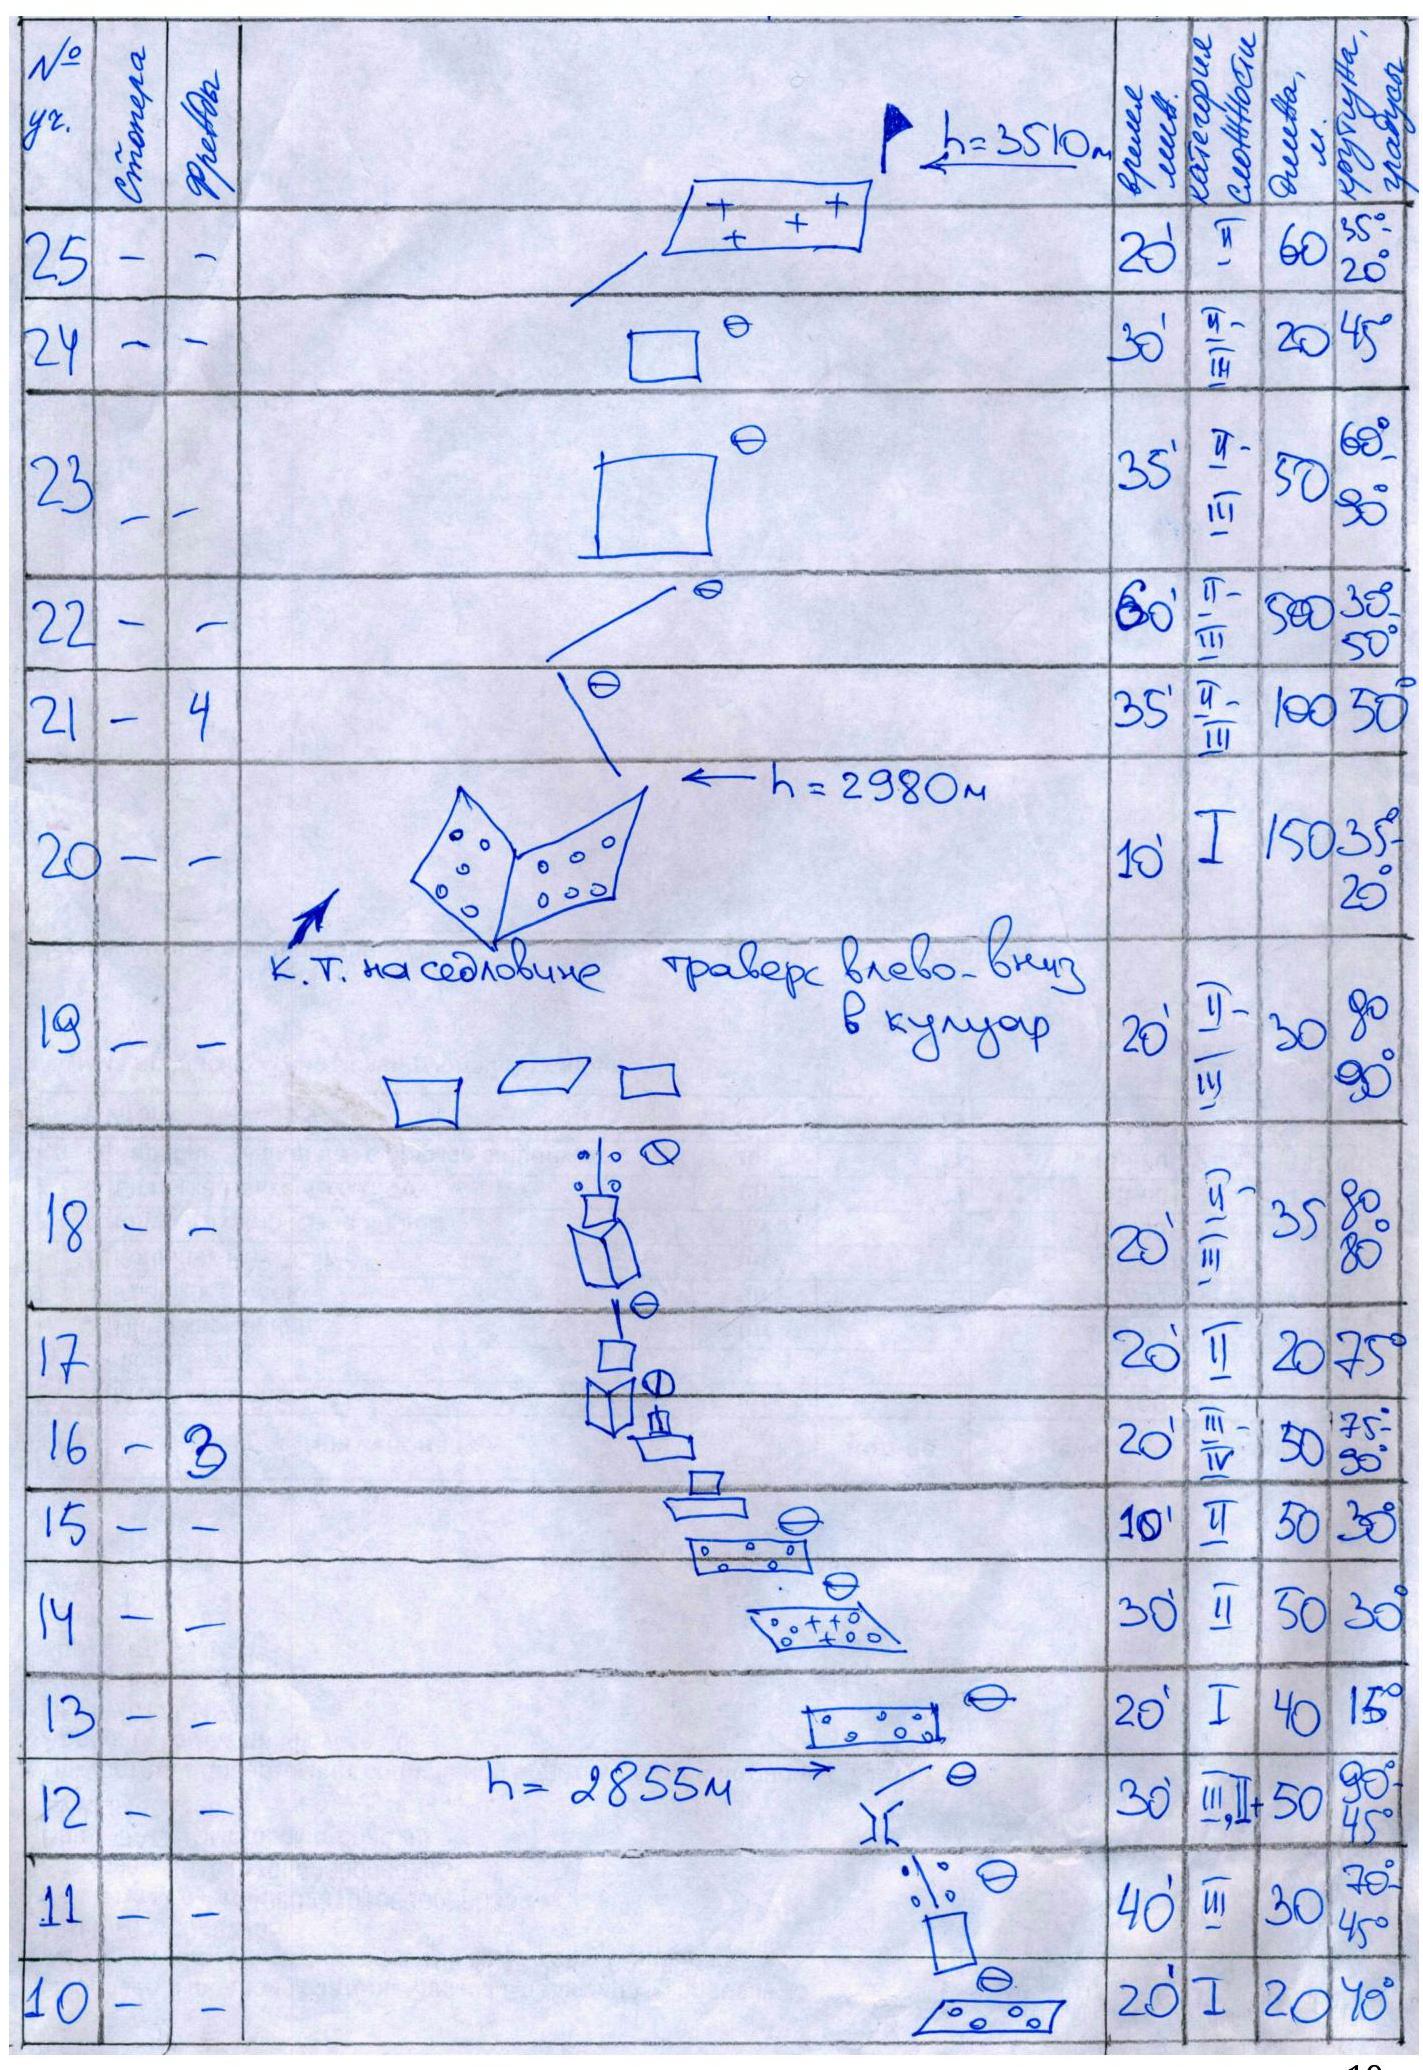 № уч. Стопера Френды время мин. категория сложности длина, м. крутизна, градусы
h = 3510м
25 - - 20' II 60 35°- 20°
24 - - 30' II- III 20 45°
23 - - 35' II- III 50 60°- 90°
22 - - 60' II- III 500 30°- 50°
21 - 4 35' II- III 100 50°
← h = 2980м
20 - - 10' I 150 35°- 20°
к.т. на седловине траверс влево-вниз
в кулуар
19 - - 20' II- III 30 80 90°
18 - - 20' II- III 35 80 80°
17 20' II 20 75°
16 - 3 20' III- IV 50 75- 90°
15 - - 10' II 50 30°
14 - - 30' II 50 30°
13 - - 20' I 40 15°
h = 2855м →
12 - - 30' III, II+ 50 90°- 45°
11 - - 40' III 30 70°- 45°
10 - - 20' I 20 40°